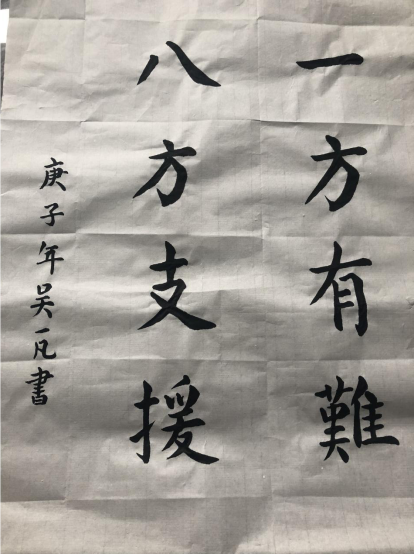 一方有難
八方支援
庚子年吴一凡書